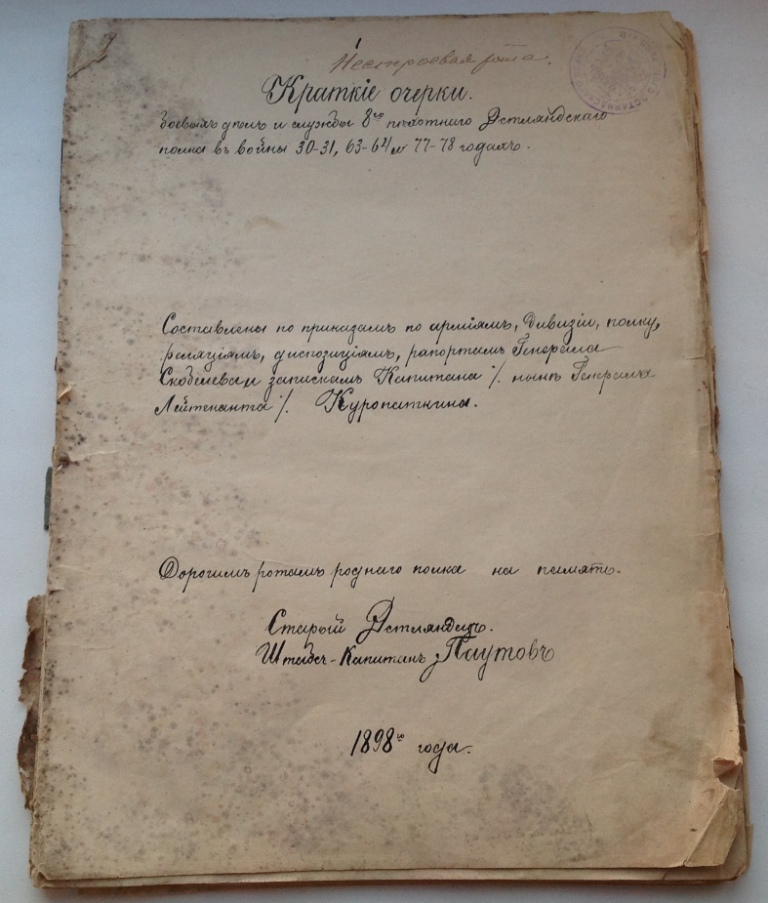 Нестроевая рота.
Краткіе очерки.
боевыхъ дѣлъ и службы 8го пѣхотнаго Эстляндскаго
полка въ войны 30-31, 63-64 и 77-78 годахъ.
Составлены по приказамъ по арміямъ, дивизіи, полку,
реляціямъ, диспозиціямъ, рапортамъ Генерала
Скобелева и запискамъ Капитана /. нынѣ Генерала
Лейтенанта /. Куропаткина.
Дорогимъ ротамъ роднаго полка на память.
Старый Эстляндецъ.
Штабсъ-Капитанъ Паутовъ
1898го года.